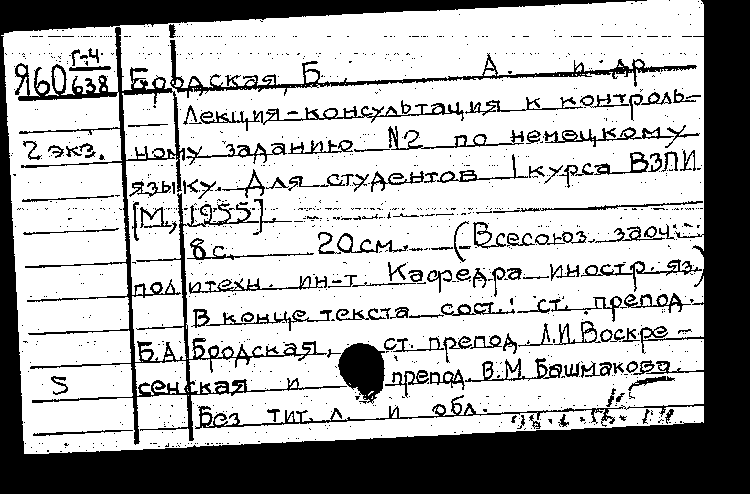 Г-4
Я60 638 Бродская, Б. А. и др
Лекция-консультация к контроль-
2 экз. ному заданию №2 по немецкому
языку. Для студентов I курса ВЗПИ
[М., 1955].
8 с. 20 см. (Всесоюз. заоч.
политехн. ин-т. Кафедра иностр. яз.)
В конце текста сост.: ст. препод.
Б.А. Бродская, ст. препод. Л.И. Воскре-
S сенская и препод. В.М. Башмакова.
Без тит. л. и обл.